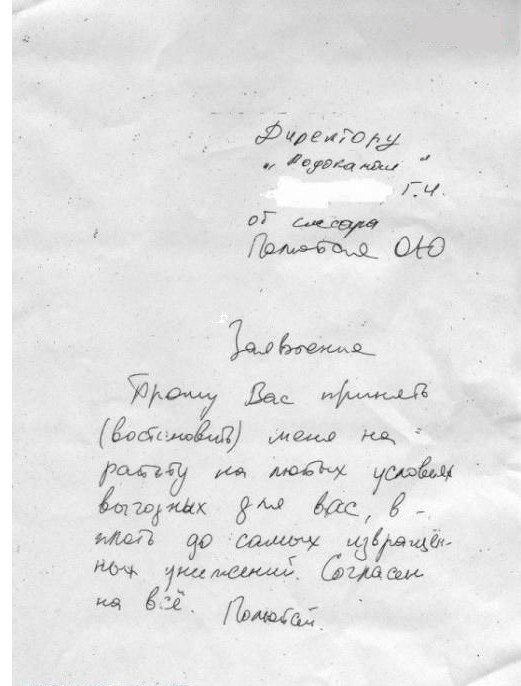 Директору
"Водоканал"
Г.И.
от слесаря
Полюбая О.Ю
Заявление
Прошу Вас принять
(востановить) меня на
работу на любых условиях
выгодных для вас, в-
плоть до самых извращён-
ных унижений. Согласен
на всё. Полюбай.